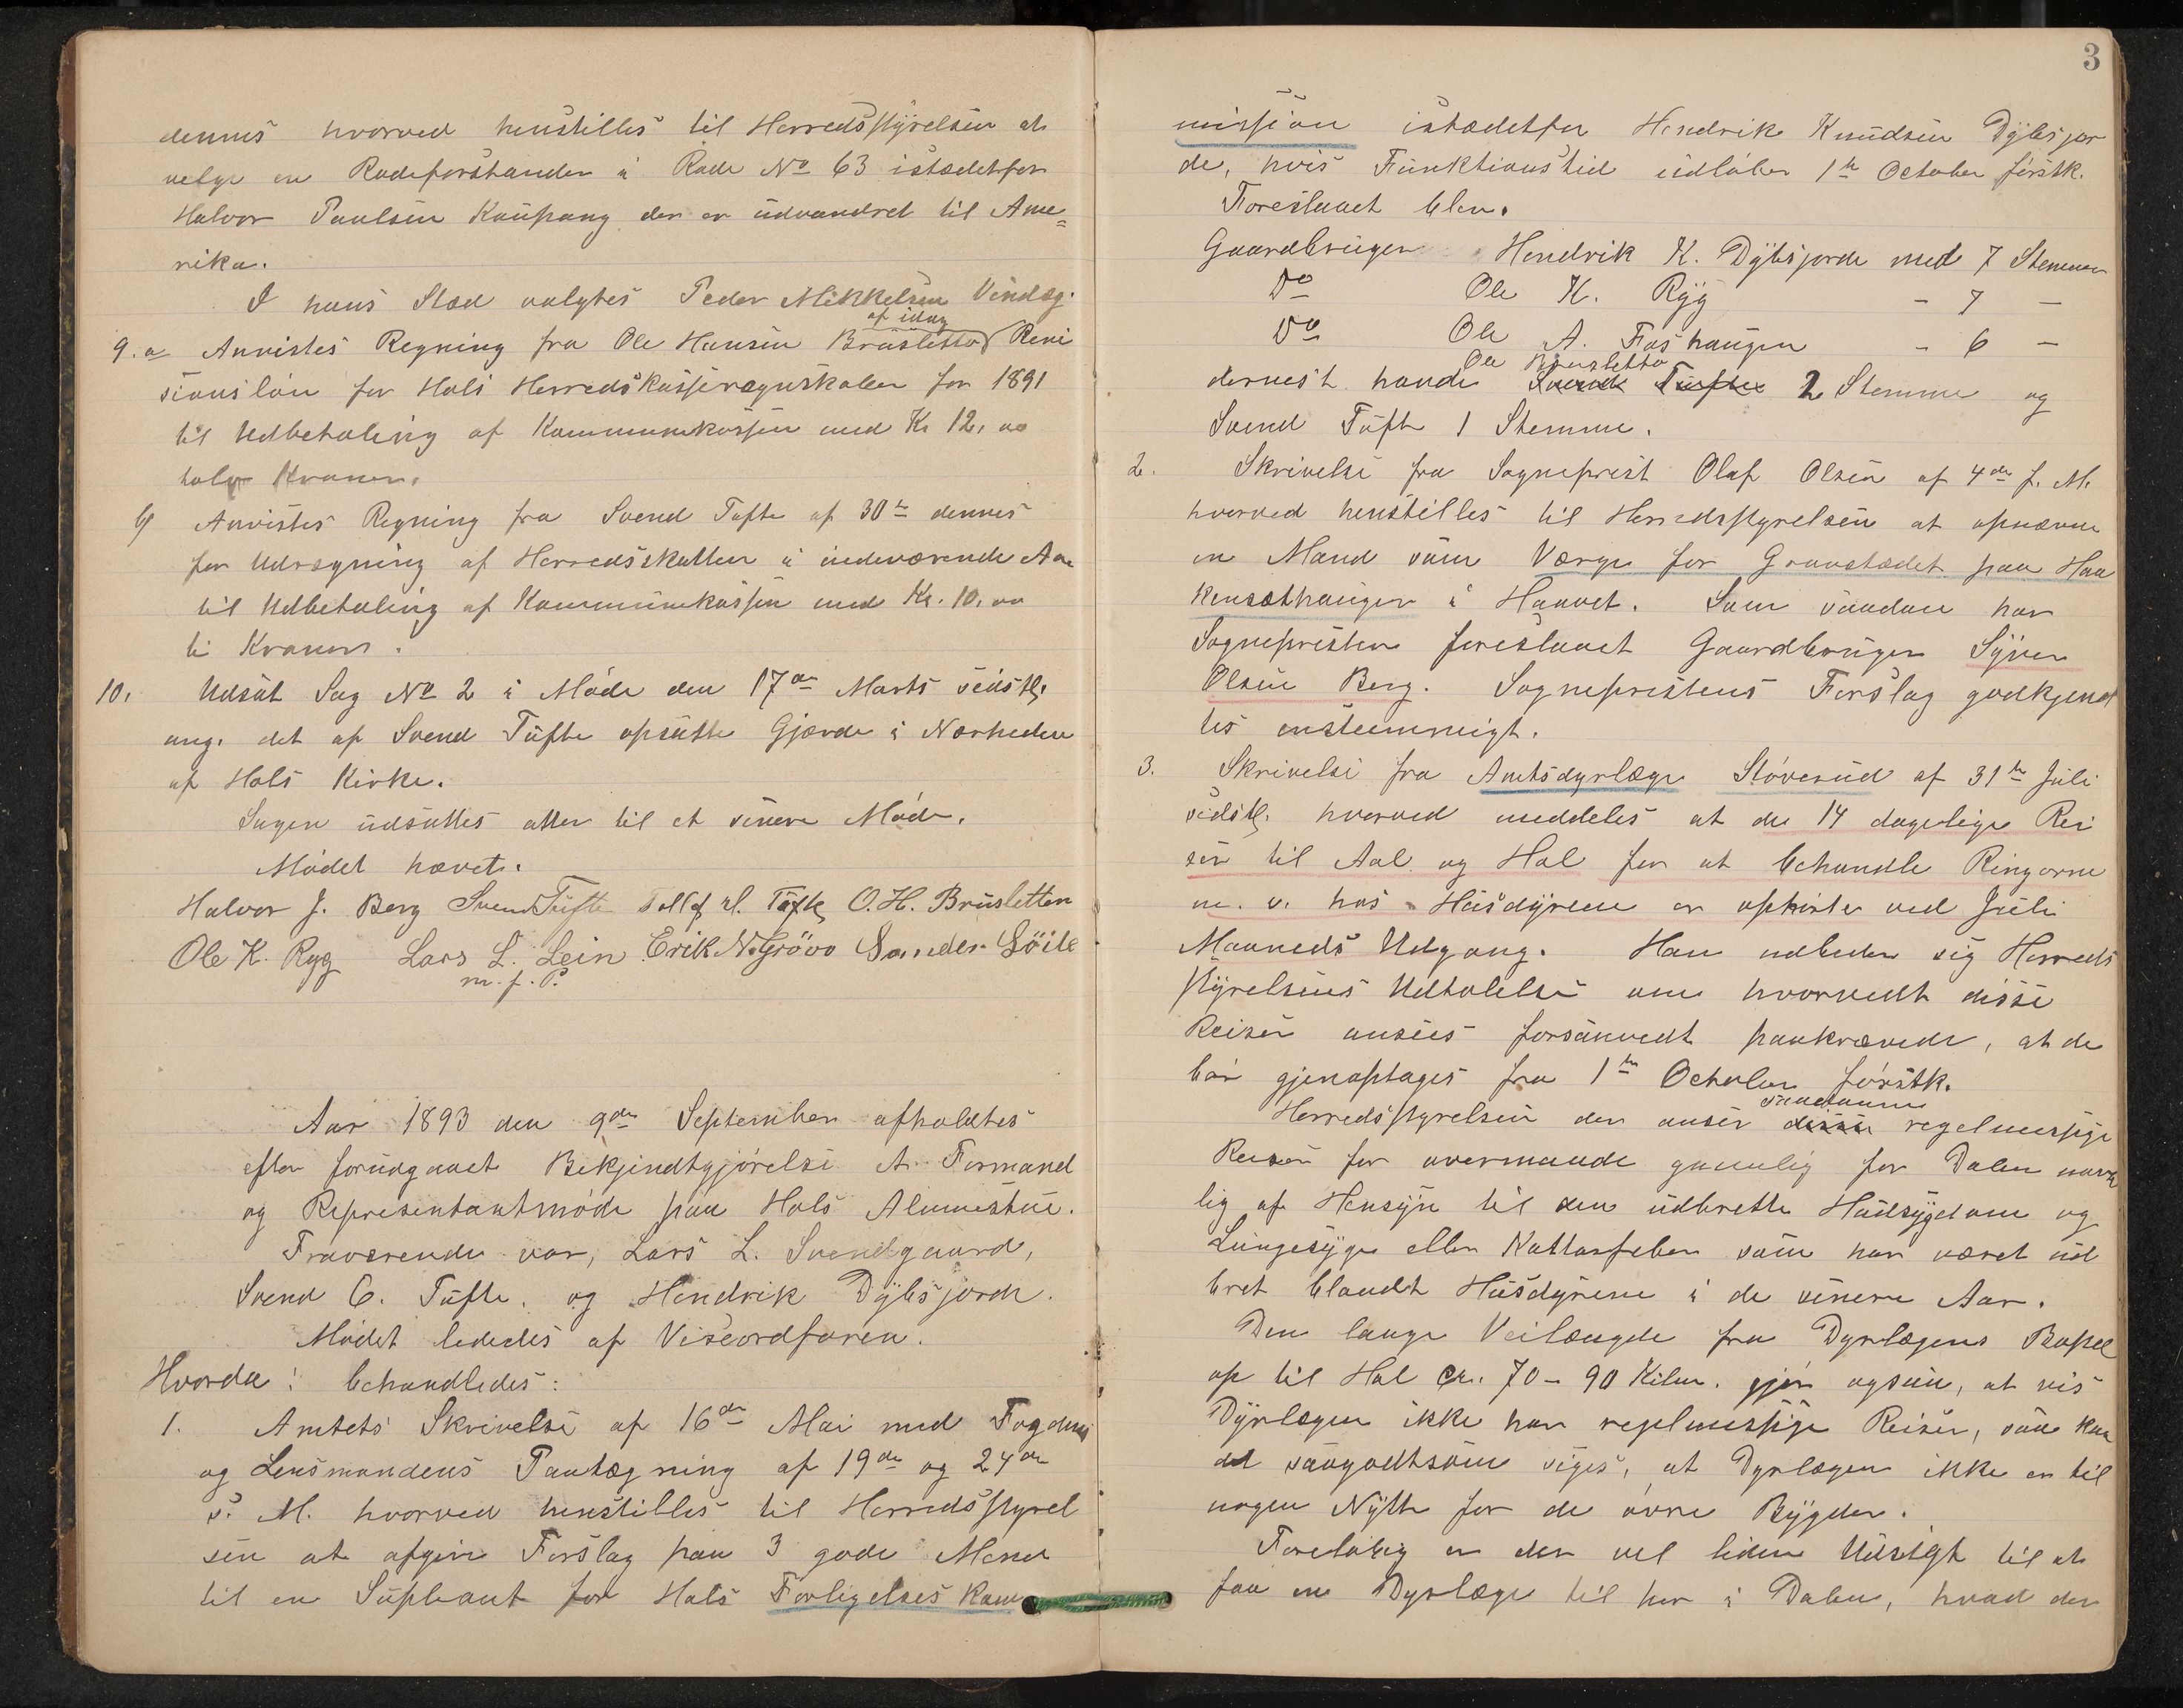 dennes hvorved henstilles til Herredsstyrelsen at
velge en Rodeforstander i Rode No 63 istædetfor
Halvor Paulsen Kaupang der er udvandret til Ame=
rika.
I hans Sted valgtes Peder Mikkelsen Vindeg.
af idag
9. a Anvistes Regning fra Ole Hansen Brusletto Revi
sionsløn for Hols Herredskasseregnskaber for 1891
til Udbetaling af Kommunekassen med Kr 12,00
tolv Kroner.
b) Anvistes Regning fra Svend Tufte af 30te dennes
for Udregning af Herredsskatten i indeværende Aar
til Udbetaling af Kommunekassen med Kr. 10,00
ti Kroner.
10. Udsat Sag No 2 i Møde den 17de Marts sidstl.
ang. det af Svend Tufte opsatte Gjærde i Nærheden
af Hols Kirke.
Sagen udsattes atter til et senere Møde.
Mødet hævet.
Halvor J. Berg Svend Tufte Tollef H. Tufte O. H. Brusletten
Ole K. Ryg Lars L. Lein Erik N. Grövo Sander Göile
m. f. P.
Aar 1893 den 9de September afholdtes
efter forudgaaet Bekjendtgjørelse et Formand
og Representantmøde paa Hols Almuestue.
Fraværende var, Lars L. Svendgaard,
Svend C. Tufte, og Hendrik Dybsjord.
Mødet lededes af Viseordføren.
Hvorda: behandledes:
1. Amtets Skrivelse af 16de Mai med Fogdens
og Lensmandens Paategning af 19de og 24de
s. M. hvorved henstilles til Herredsstyrel
sen at afgive Forslag paa 3 gode Mend
til en Supleant for Hols Forligelses Kom
3
mission istædetfor Hendrik Knudsen Dybsjor
de, hvis Funktionstid udløber 1te October førstk.
Foreslaaet blev.
Gaardbruger Hendrik K. Dybsjorde med 7 Stemmer
Do Ole K. Ryg - 7 -
Do Ole A. Foshaugen - 6 -
Ole Brusletto
dernest havde Svend Tufte 2 Stemme og
Svend Tufte 1 Stemme.
2. Skrivelse fra Sogneprest Olaf Olsen af 4de f. M.
hvorved henstilles til Herredsstyrelsen at opnævne
en Mand som Verge for Gravstædet paa Haa
kensæthaugen i Haavet. Som saadan har
Sognepresten foreslaaet Gaardbruger Syver
Olsen Berg. Sogneprestens Forslag godkjend
tes ensteemmigt.
3. Skrivelse fra Amtsdyrlæge Støverud af 31te Juli
sidstl. hvorved meddeles at de 14 dagelige Rei
ser til Aal og Hol for at behandle Ringorme
m. v. hos Husdyrene er ophørte ved Juli
Maaneds Udgang. Han udbeder sig Herreds
styrelsens Udtalelse om hvorvidt disse
Reiser ansees forsaavidt paakrævede, at de
bør gjenoptages fra 1te October førstk.
saadanne
Herredsstyrelsen der anser disse regelmessige
Reiser for overmaade gavnlig for Dalen navn
lig af Hensyn til den udbrette Hudsygdom og
Lungesyge eller Kattarfeber som har været ud
bret blandt Husdyrene i de senere Aar.
Den lange Veilængde fra Dyrlægens Bopæl
op til Hol ca. 70 - 90 Kilm. gjør ogsaa, at vis
Dyrlægen ikke har regelmessige Reiser, saa kan
det saagodtsom siges, at Dyrlægen ikke er til
nogen Nytte for de øvre Bygder.
Foreløbig er der vel liden Udsigt til at
faa en Dyrlæge til her i Dalen, hvad der